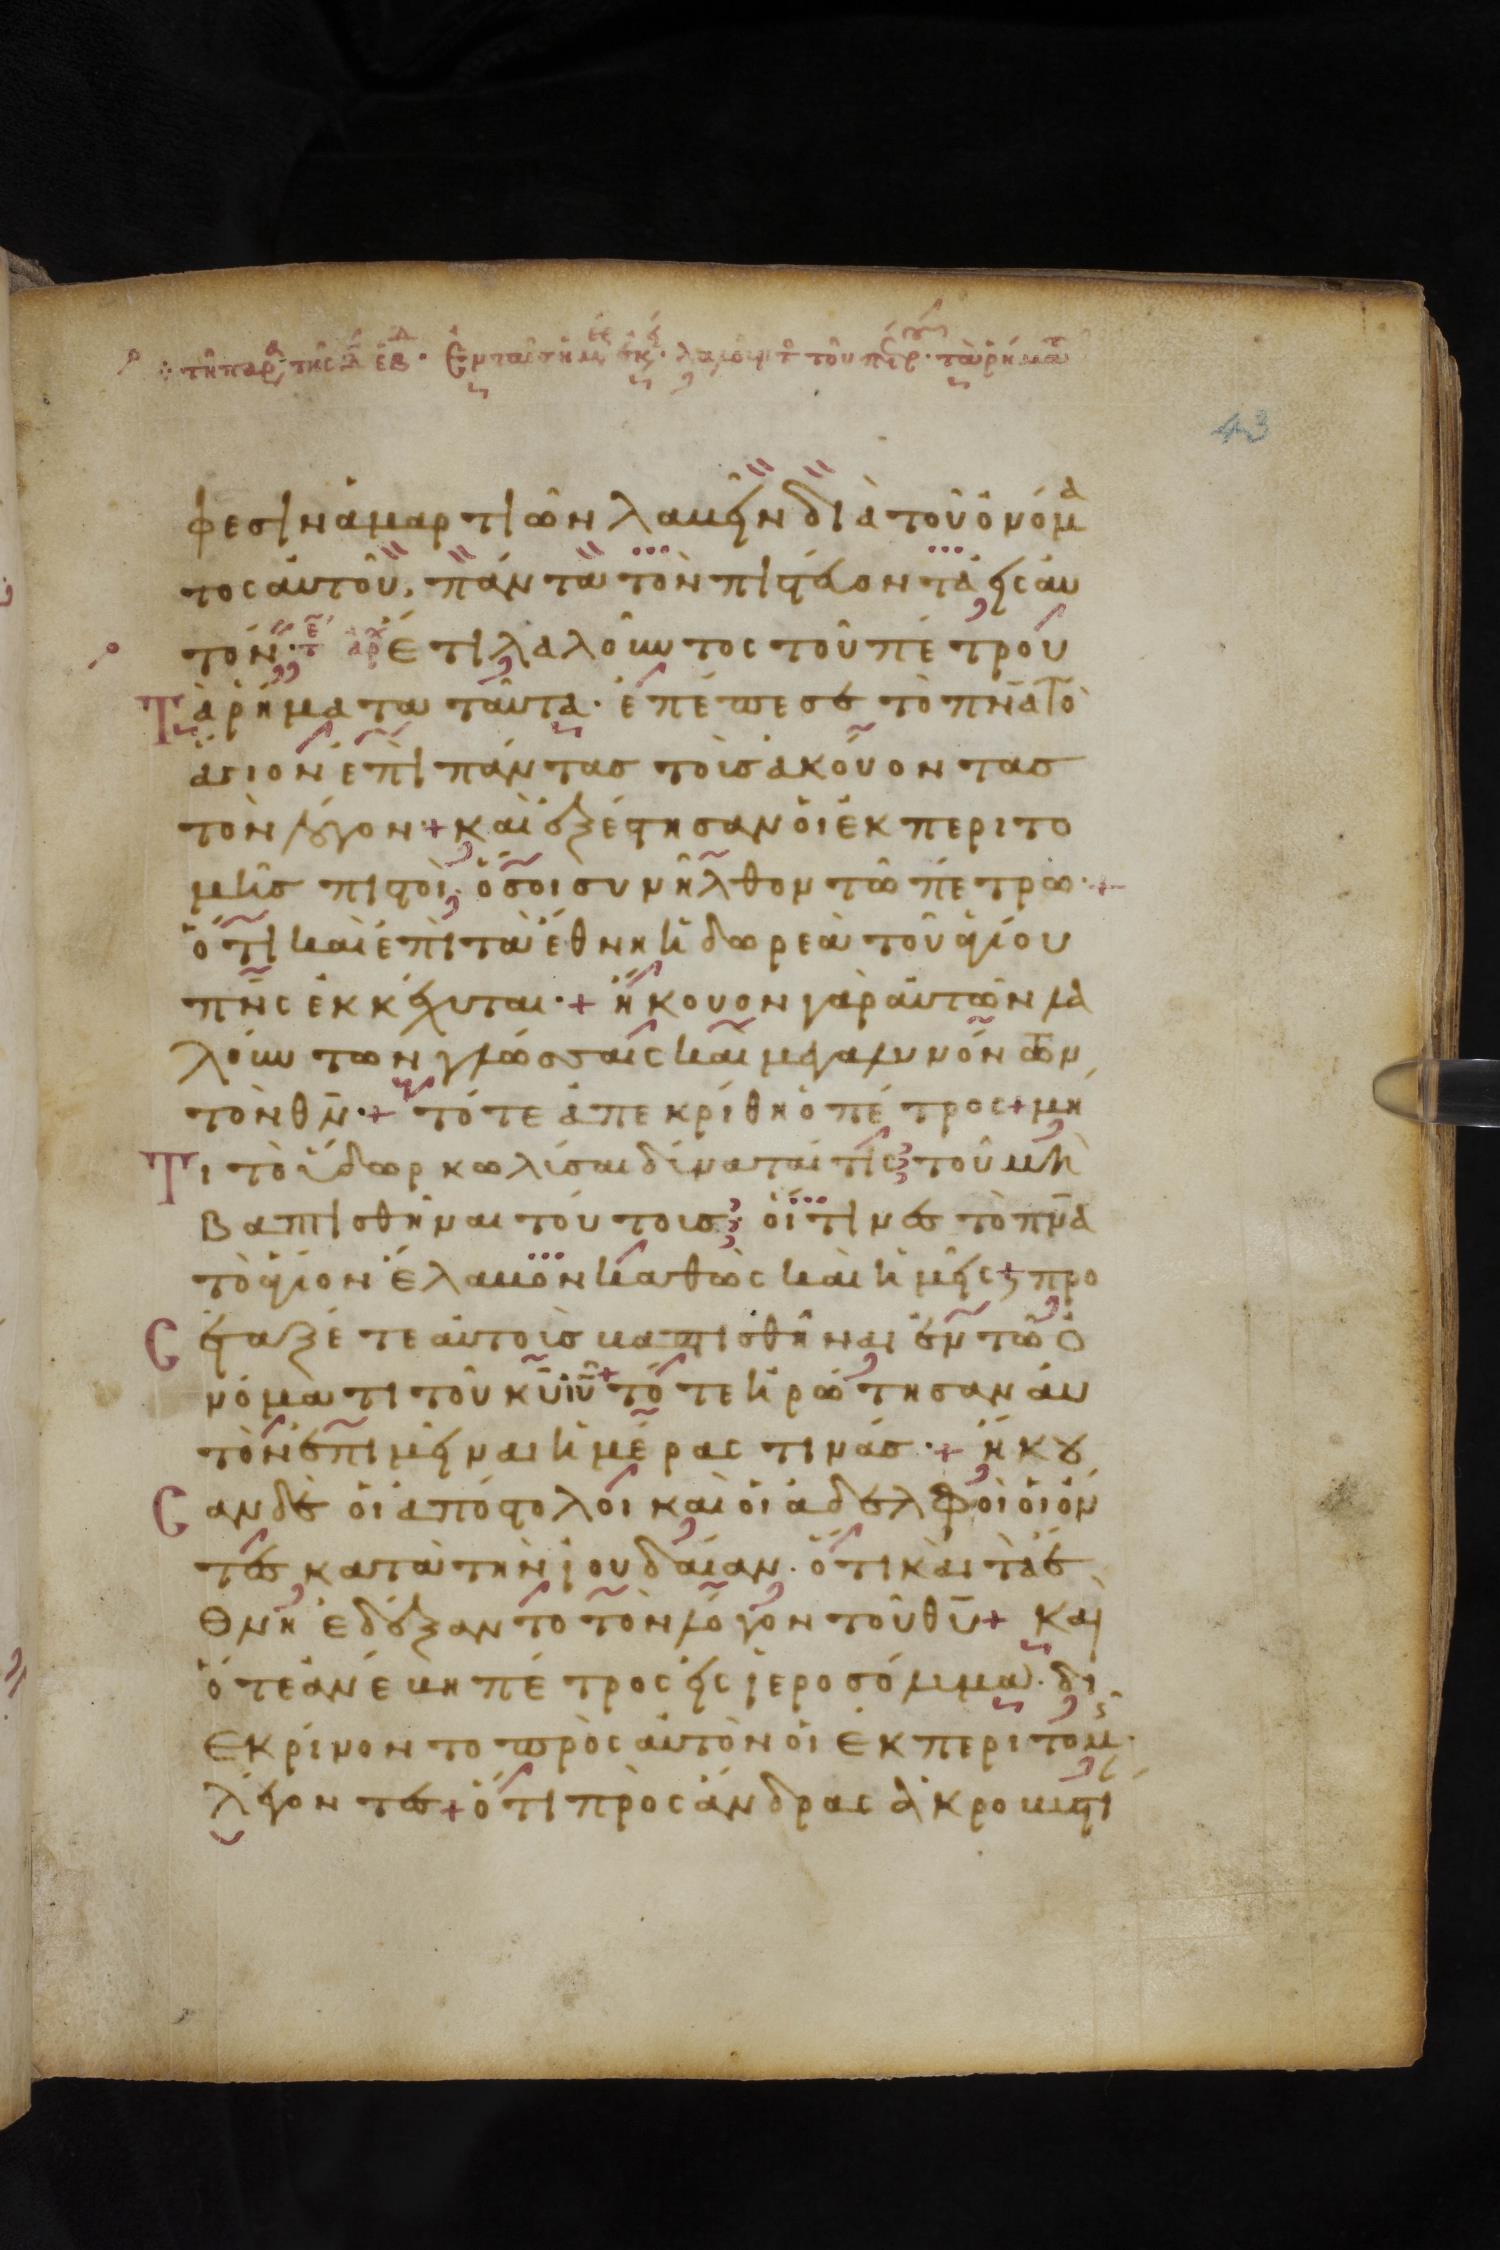 τῆ παρ τῆς δ ἑβ. Ἐν ταῖς ἡμ ἐκ. λαλοῦντ τοῦ πέτρ. τὰ ῥήματ
43
φεσιν ἁμαρτιῶν λαβεῖν διὰ τοῦ ὀνόμα
τος αὐτοῦ, πάντα τὸν πιστέβοντα εἰς αὐ
τόν· τε αρχ Ἔτι λαλοῦντος τοῦ πέτρου
Τὰ ῥήματα ταῦτα· ἐπέπεσε τὸ πν̅α τὸ
ἅγιον ἐπὶ πάντας τοὺς ἀκούοντας
τὸν λόγον·+ καὶ ἐξέστησαν οἱ ἐκ περιτο
μῆς πιστοὶ, ὅσοι συνῆλθον τῶ πέτρω·+
ὅτι καὶ ἐπὶ τὰ ἔθνη ἡ δωρεὰ τοῦ ἁγίου
πν̅ς ἐκκέχυται·+ ἤκουον γὰρ αὐτῶν λα
λούντων γλώσσαις καὶ μεγαλυνόντων
τὸν θν̅·+ τότε ἀπεκρίθη ὁ πέτρος+ μή
Τι τὸ ὕδωρ κωλίσαι δύναταί τις τοῦ μὴ
βαπτισθῆναι τούτοις; οἵτινες τὸ πν̅α
τὸ ἅγιον ἔλαβον καθὼς καὶ ἡμεῖς+ προ
Σέταξέ τε αὐτοὺς βαπτισθῆναι ἐν τῶ ὀ
νόματι τοῦ κυ̅ ιυ̅+ τότε ἠρώτησαν αὐ
τὸν ἐπιμεῖναι ἡμέρας τινάς·+ ἤκου
Σαν δὲ οἱ ἀπόστολοι καὶ οἱ ἀδελφοὶ οἱ ὄν
τες κατὰ τὴν ἰουδαίαν. ὅτι καὶ τὰ ἔ
θνη ἐδέξαντο τὸν λόγον τοῦ θυ̅+ Καὶ
ὅτε ἀνέβη πέτρος εἰς ἱεροσόλυμα· δι
εκρίνοντο πρὸς αὐτὸν οἱ ἐκ περιτομῆς·
λέγοντες+ ὅτι πρὸς ἄνδρας ἀκροβυστί